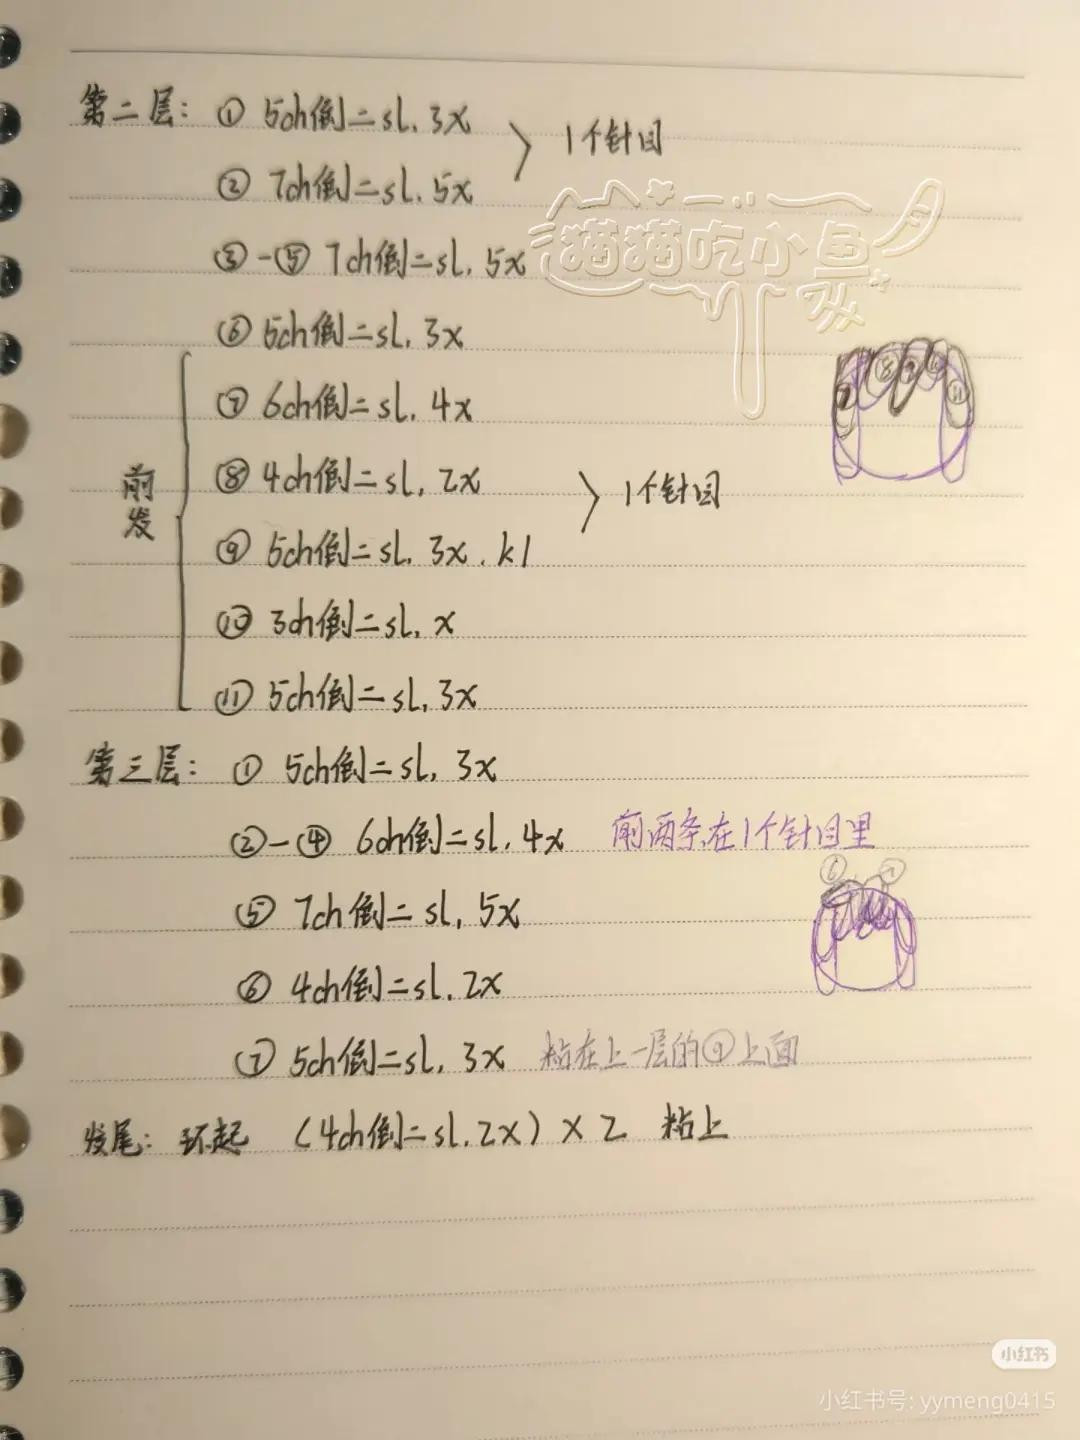 第二层: ① 5ch倒二sl. 3x
② 7ch倒二sl. 5x
1个针目
③-⑤ 7ch倒二sl. 5x
猫猫吃小鱼
⑥ 5ch倒二sl. 3x
⑦ 6ch倒二sl. 4x
前发
⑧ 4ch倒二sl. 2x
1个针目
⑨ 5ch倒二sl. 3x. k1
⑩ 3ch倒二sl. x
⑪ 5ch倒二sl. 3x
7 ⑧ 9 11
第三层: ① 5ch倒二sl. 3x
②-④ 6ch倒二sl. 4x 前两条在1个针目里
⑤ 7ch倒二sl. 5x
⑥ ⑦
⑥ 4ch倒二sl. 2x
⑦ 5ch倒二sl. 3x 粘在上一层的⑨上面
发尾: 环起 (4ch倒二sl. 2x) × 2 粘上
小红书
小红书号: yymeng0415